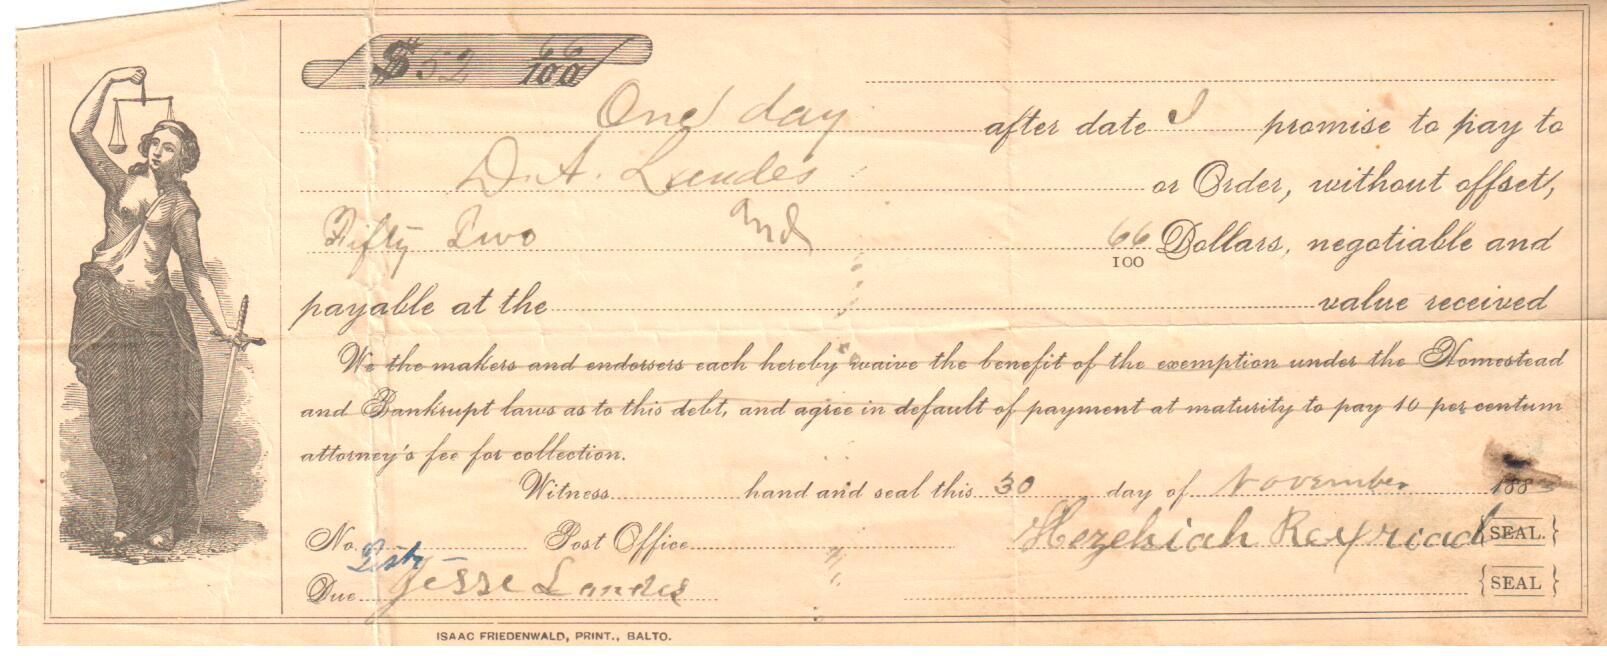 $ 52 66/100
One day after date I promise to pay to
D. A. Landes or Order, without offset,
Fifty Two and 66/100 Dollars, negotiable and
payable at the value received
We the makers and endorsers each hereby waive the benefit of the exemption under the Homestead
and Bankrupt laws as to this debt, and agree in default of payment at maturity to pay 10 per centum
attorney's fee for collection.
Witness hand and seal this 30 day of November 188
No. Post Office Hezekiah {SEAL.}
Due Jesse Landes {SEAL}
ISAAC FRIEDENWALD, PRINT., BALTO.